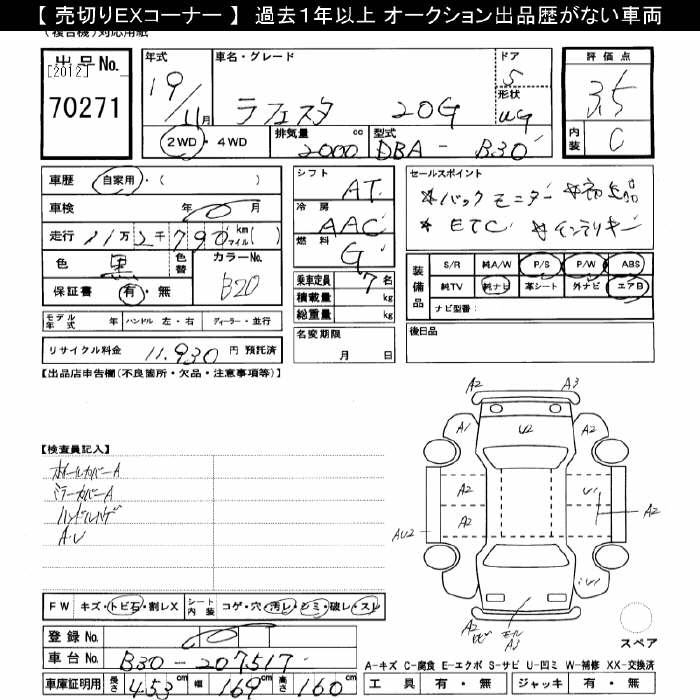 【 売切りEXコーナー 】 過去1年以上 オークション出品歴がない車両
(複合機)対応用紙
出品No.
[2012]
70271
年式
19/11月
車名・グレード
ラフェスタ 20G
ドア
5
形状
WG
評価点
3.5
内装
C
2WD・4WD
排気量
2000 cc
型式
DBA - B30
車歴 自家用・( )
車検 年 月
走行 11万2千790 km マイル( )
色 黒 色替
カラーNo.
B20
保証書 有・無
モデル年式 年 ハンドル 左・右 ディーラー・並行
リサイクル料金 11,930 円 預託済
シフト
AT
冷房
AAC
燃料
G
乗車定員 7 名
積載量 kg
総重量 kg
名変期限
月 日
セールスポイント
*バックモニター *
*ETC *インテリキー
装備品
S/R 純A/W P/S P/W ABS
純TV 純ナビ 革シート 外ナビ エアB
ナビ型番:
後日品
【出品店申告欄(不良箇所・欠品・注意事項等)】
【検査員記入】
ホイールカバーA
ミラーカバーA
ハンドルハゲ
A・U
A2 A3
A1 U2 A2
A2 U1
A2 A2
AU2
A2 A3
FW キズ・トビ石・割レX
シート内装 コゲ・穴・汚レ・シミ・破レ・スレ
登録No.
車台No. B30-207517
車庫証明用 長さ 453 cm 幅 169 cm 高さ 160 cm
スペア
A-キズ C-腐食 E-エクボ S-サビ U-凹ミ W-補修 XX-交換済
工具 有・無 ジャッキ 有・無